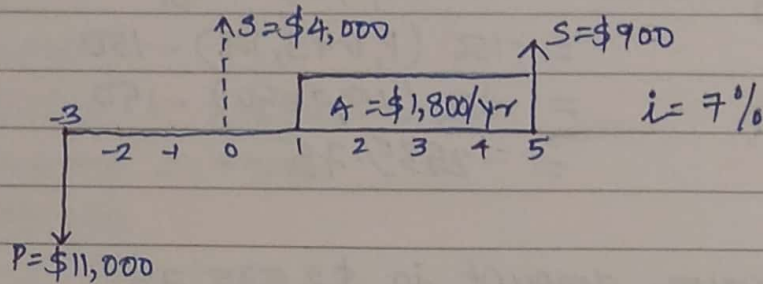 S=$4,000
S=$900
A=$1,800/yr
i=7%
-3
-2 -1 0 1 2 3 4 5
P=$11,000